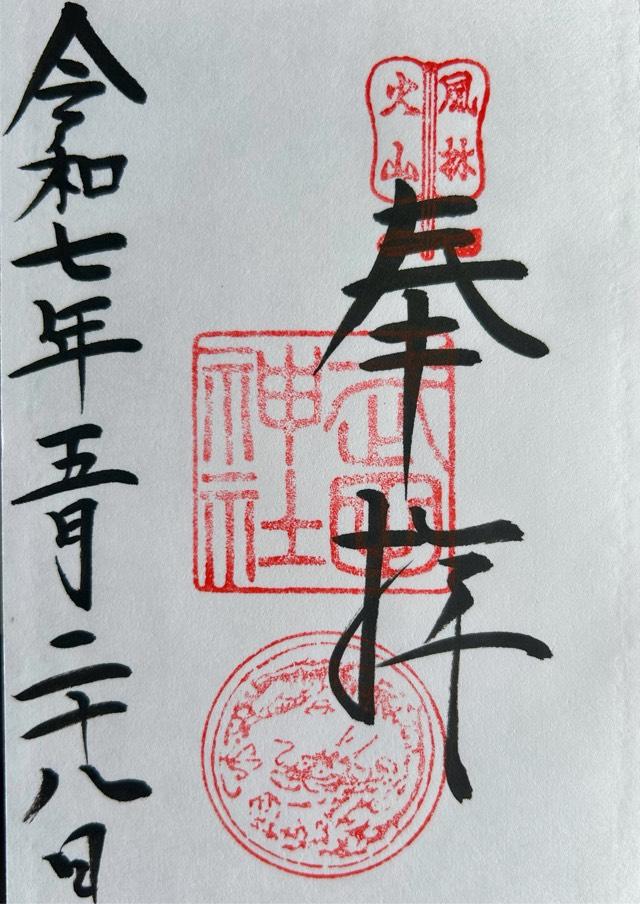 風林
火山
奉拝
武田
神社
令和七年五月二十八日